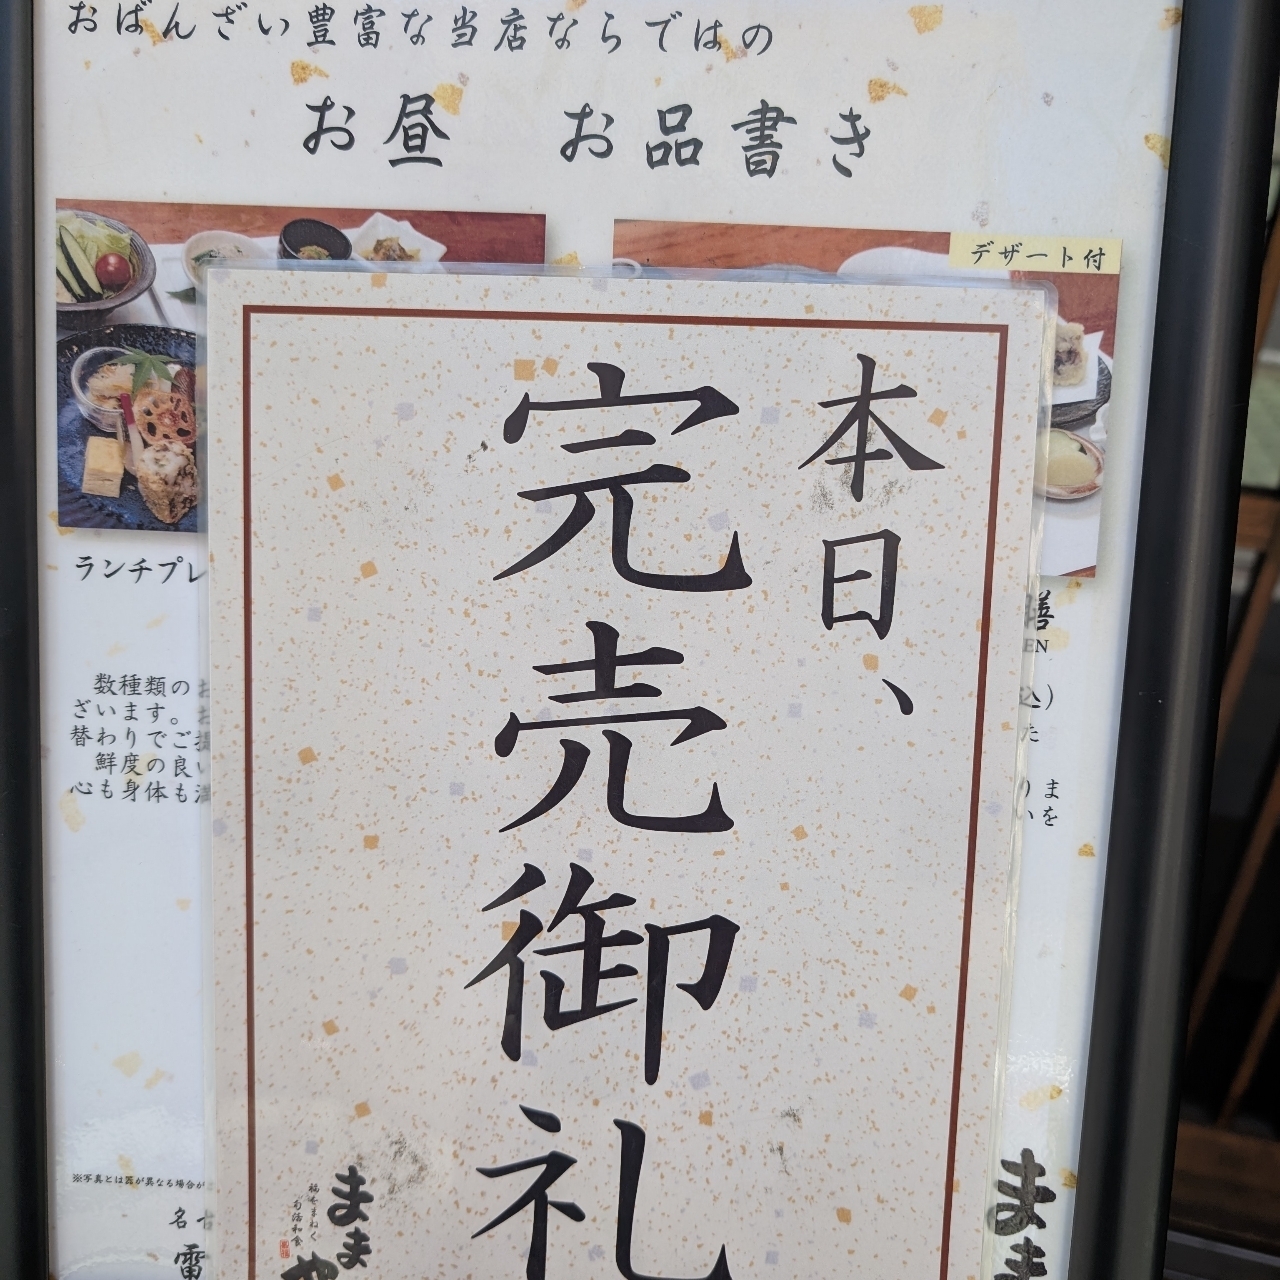 おばんざい豊富な当店ならではの
お昼 お品書き
デザート付
本日、
完売御礼
福をまねく
旬活和食
まま
ランチプレ
数種類の
ざいます。
替わりでご
鮮度の良い
心も身体も
※写真とは器が異なる場合が
名
膳
EN
込)
た
ま
を
まま